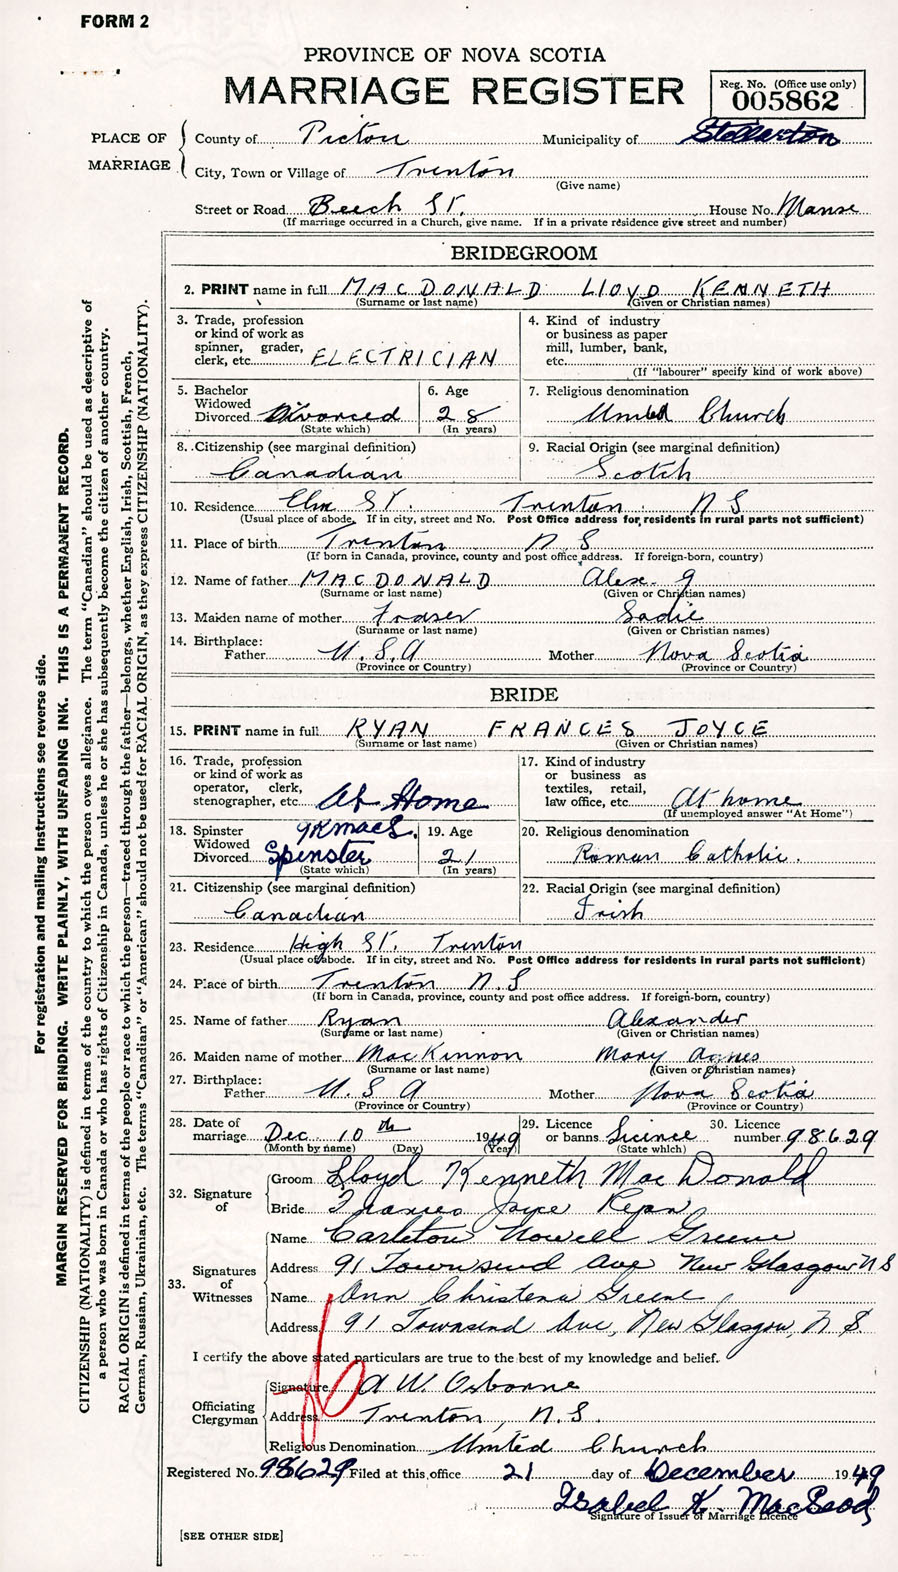 FORM 2
PROVINCE OF NOVA SCOTIA
MARRIAGE REGISTER
Reg. No. (Office use only)
005862
PLACE OF MARRIAGE
County of Pictou Municipality of Stellarton
City, Town or Village of Trenton
(Give name)
Street or Road Beech St. House No. Manse
(If marriage occurred in a Church, give name. If in a private residence give street and number)
BRIDEGROOM
2. PRINT name in full MACDONALD LLOYD KENNETH
(Surname or last name) (Given or Christian names)
3. Trade, profession 4. Kind of industry
or kind of work as or business as paper
spinner, grader, mill, lumber, bank,
clerk, etc. ELECTRICIAN etc.
(If "labourer" specify kind of work above)
5. Bachelor 6. Age 7. Religious denomination
Widowed
Divorced Divorced 28 United Church
(State which) (In years)
8. Citizenship (see marginal definition) 9. Racial Origin (see marginal definition)
Canadian Scotch
10. Residence Elm St. Trenton N S
(Usual place of abode. If in city, street and No. Post Office address for residents in rural parts not sufficient)
11. Place of birth Trenton N S
(If born in Canada, province, county and post office address. If foreign-born, country)
12. Name of father MACDONALD Alex. J
(Surname or last name) (Given or Christian names)
13. Maiden name of mother Fraser Sadie
(Surname or last name) (Given or Christian names)
14. Birthplace:
Father U.S.A Mother Nova Scotia
(Province or Country) (Province or Country)
BRIDE
15. PRINT name in full RYAN FRANCES JOYCE
(Surname or last name) (Given or Christian names)
16. Trade, profession 17. Kind of industry
or kind of work as or business as
operator, clerk, textiles, retail,
stenographer, etc. At Home law office, etc. At home
(If unemployed answer "At Home")
18. Spinster 19. Age 20. Religious denomination
Widowed
Divorced Spinster 21 Roman Catholic.
(State which) (In years)
21. Citizenship (see marginal definition) 22. Racial Origin (see marginal definition)
Canadian Irish
23. Residence High St. Trenton
(Usual place of abode. If in city, street and No. Post Office address for residents in rural parts not sufficient)
24. Place of birth Trenton N.S
(If born in Canada, province, county and post office address. If foreign-born, country)
25. Name of father Ryan Alexander
(Surname or last name) (Given or Christian names)
26. Maiden name of mother MacKinnon Mary Agnes
(Surname or last name) (Given or Christian names)
27. Birthplace:
Father U.S A Mother Nova Scotia
(Province or Country) (Province or Country)
28. Date of marriage Dec 10th 1949 29. Licence or banns Licence 30. Licence number 98629
(Month by name) (Day) (Year) (State which)
32. Signature of
Groom Lloyd Kenneth MacDonald
Bride Frances Joyce Ryan
33. Signatures of Witnesses
Name Carleton Nowell Greene
Address 91 Townsend Ave New Glasgow N S
Name Ann Christena Greene
Address 91 Townsend Ave, New Glasgow, N S.
I certify the above stated particulars are true to the best of my knowledge and belief.
Officiating Clergyman
Signature A W. Osborne
Address Trenton, N.S.
Religious Denomination United Church
Registered No. 98629 Filed at this office 21 day of December 1949
Isabel K. MacLeod
Signature of Issuer of Marriage Licence
[SEE OTHER SIDE]
For registration and mailing instructions see reverse side.
MARGIN RESERVED FOR BINDING. WRITE PLAINLY, WITH UNFADING INK. THIS IS A PERMANENT RECORD.
CITIZENSHIP (NATIONALITY) is defined in terms of the country to which the person owes allegiance. The term "Canadian" should be used as descriptive of
a person who was born in Canada or who has rights of Citizenship in Canada, unless he or she has subsequently become the citizen of another country.
RACIAL ORIGIN is defined in terms of the people or race to which the person—traced through the father—belongs, whether English, Irish, Scottish, French,
German, Russian, Ukrainian, etc. The terms "Canadian" or "American" should not be used for RACIAL ORIGIN, as they express CITIZENSHIP (NATIONALITY).